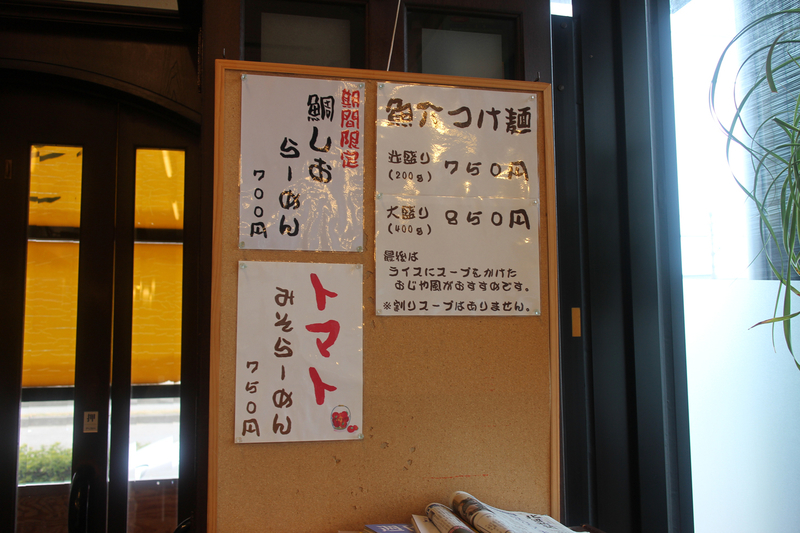 期間限定
鯛しお
らーめん
700円
魚介つけ麺
並盛り
(200g)
750円
大盛り
(400g)
850円
最後は
ライスにスープをかけた
おじや風がおすすめです。
※割りスープはありません。
トマト
みそらーめん
750円
押